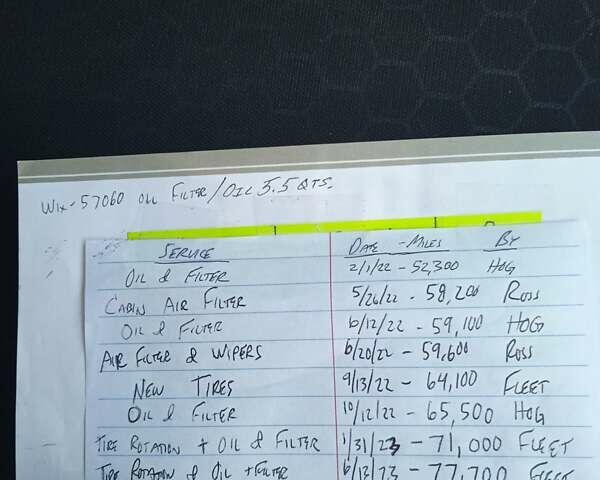 WIX-57060 OIL FILTER/OIL 5.5 QTS.
SERVICE DATE - MILES BY
OIL & FILTER 2/1/22 - 52,300 HOG
CABIN AIR FILTER 5/26/22 - 58,200 ROSS
OIL & FILTER 6/12/22 - 59,100 HOG
AIR FILTER & WIPERS 6/20/22 - 59,600 ROSS
NEW TIRES 9/13/22 - 64,100 FLEET
OIL & FILTER 10/12/22 - 65,500 HOG
TIRE ROTATION + OIL & FILTER 1/31/23 - 71,000 FLEET
TIRE ROTATION & OIL + FILTER 6/13/23 - 77,700 FLEET